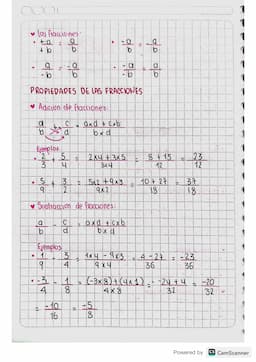 ♥ Las fracciones:
• +a/+b = a/b • -a/b = -a/b
• a/-b = -a/b • -a/-b = a/b
PROPIEDADES DE LAS FRACCIONES
♥ Adición de fracciones:
a/b + c/d = axd + cxb / bxd
Ejemplos
• 2/3 + 5/4 = 2x4 + 3x5 / 3x4 = 8 + 15 / 12 = 23/12
• 5/9 + 3/2 = 5x2 + 9x3 / 9x2 = 10 + 27 / 18 = 37/18
♥ Sustracción de fracciones:
a/b - c/d = axd + cxb / bxd
Ejemplos
• 1/9 - 3/4 = 1x4 - 9x3 / 9x4 = 4 - 27 / 36 = -23/36
• -3/4 - 1/8 = (-3x8) + (4x1) / 4x8 = -24 + 4 / 32 = -20/32
= -10/16 = -5/8
Powered by CS CamScanner